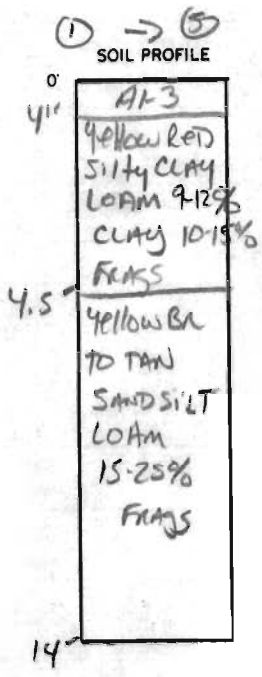 ① → ⑤
SOIL PROFILE
0'
A1-3
4"
Yellow RED
Silty CLAY
LOAM 9-12%
CLAY 10-15%
FRAGS
4.5
Yellow BR
TO TAN
SAND SILT
LOAM
15-25%
FRAGS
14